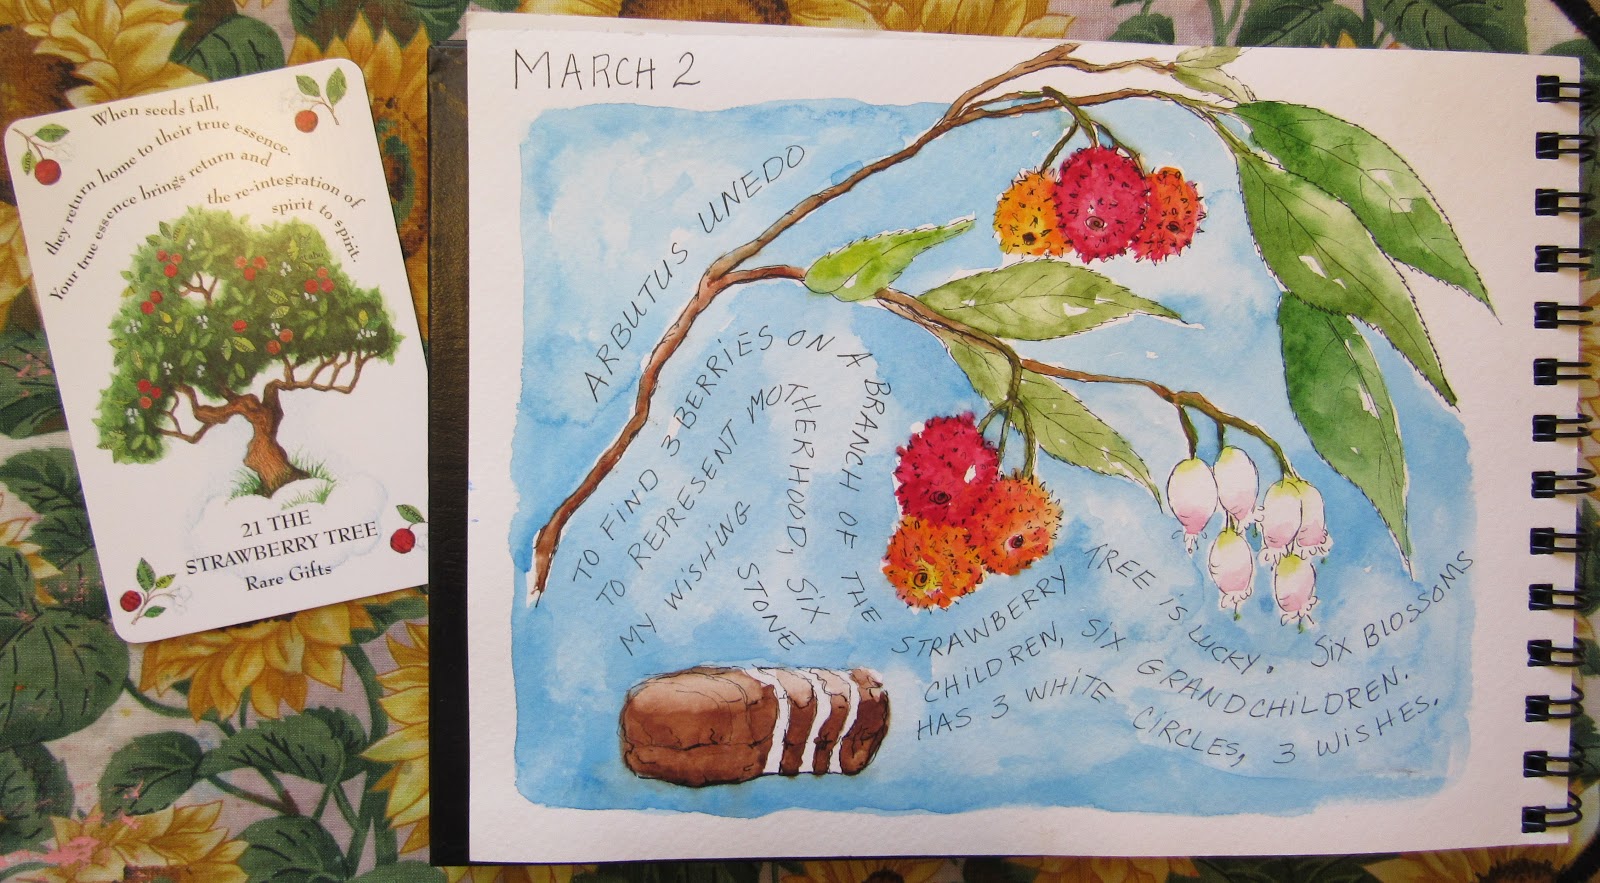 When seeds fall,
they return home to their true essence.
Your true essence brings return and
the re-integration of
spirit to spirit.
21 THE
STRAWBERRY TREE
Rare Gifts
MARCH 2
ARBUTUS UNEDO
TO FIND 3 BERRIES ON A BRANCH OF THE STRAWBERRY TREE IS LUCKY. SIX BLOSSOMS
TO REPRESENT MOTHERHOOD, SIX CHILDREN, SIX GRANDCHILDREN.
MY WISHING STONE HAS 3 WHITE CIRCLES, 3 WISHES.